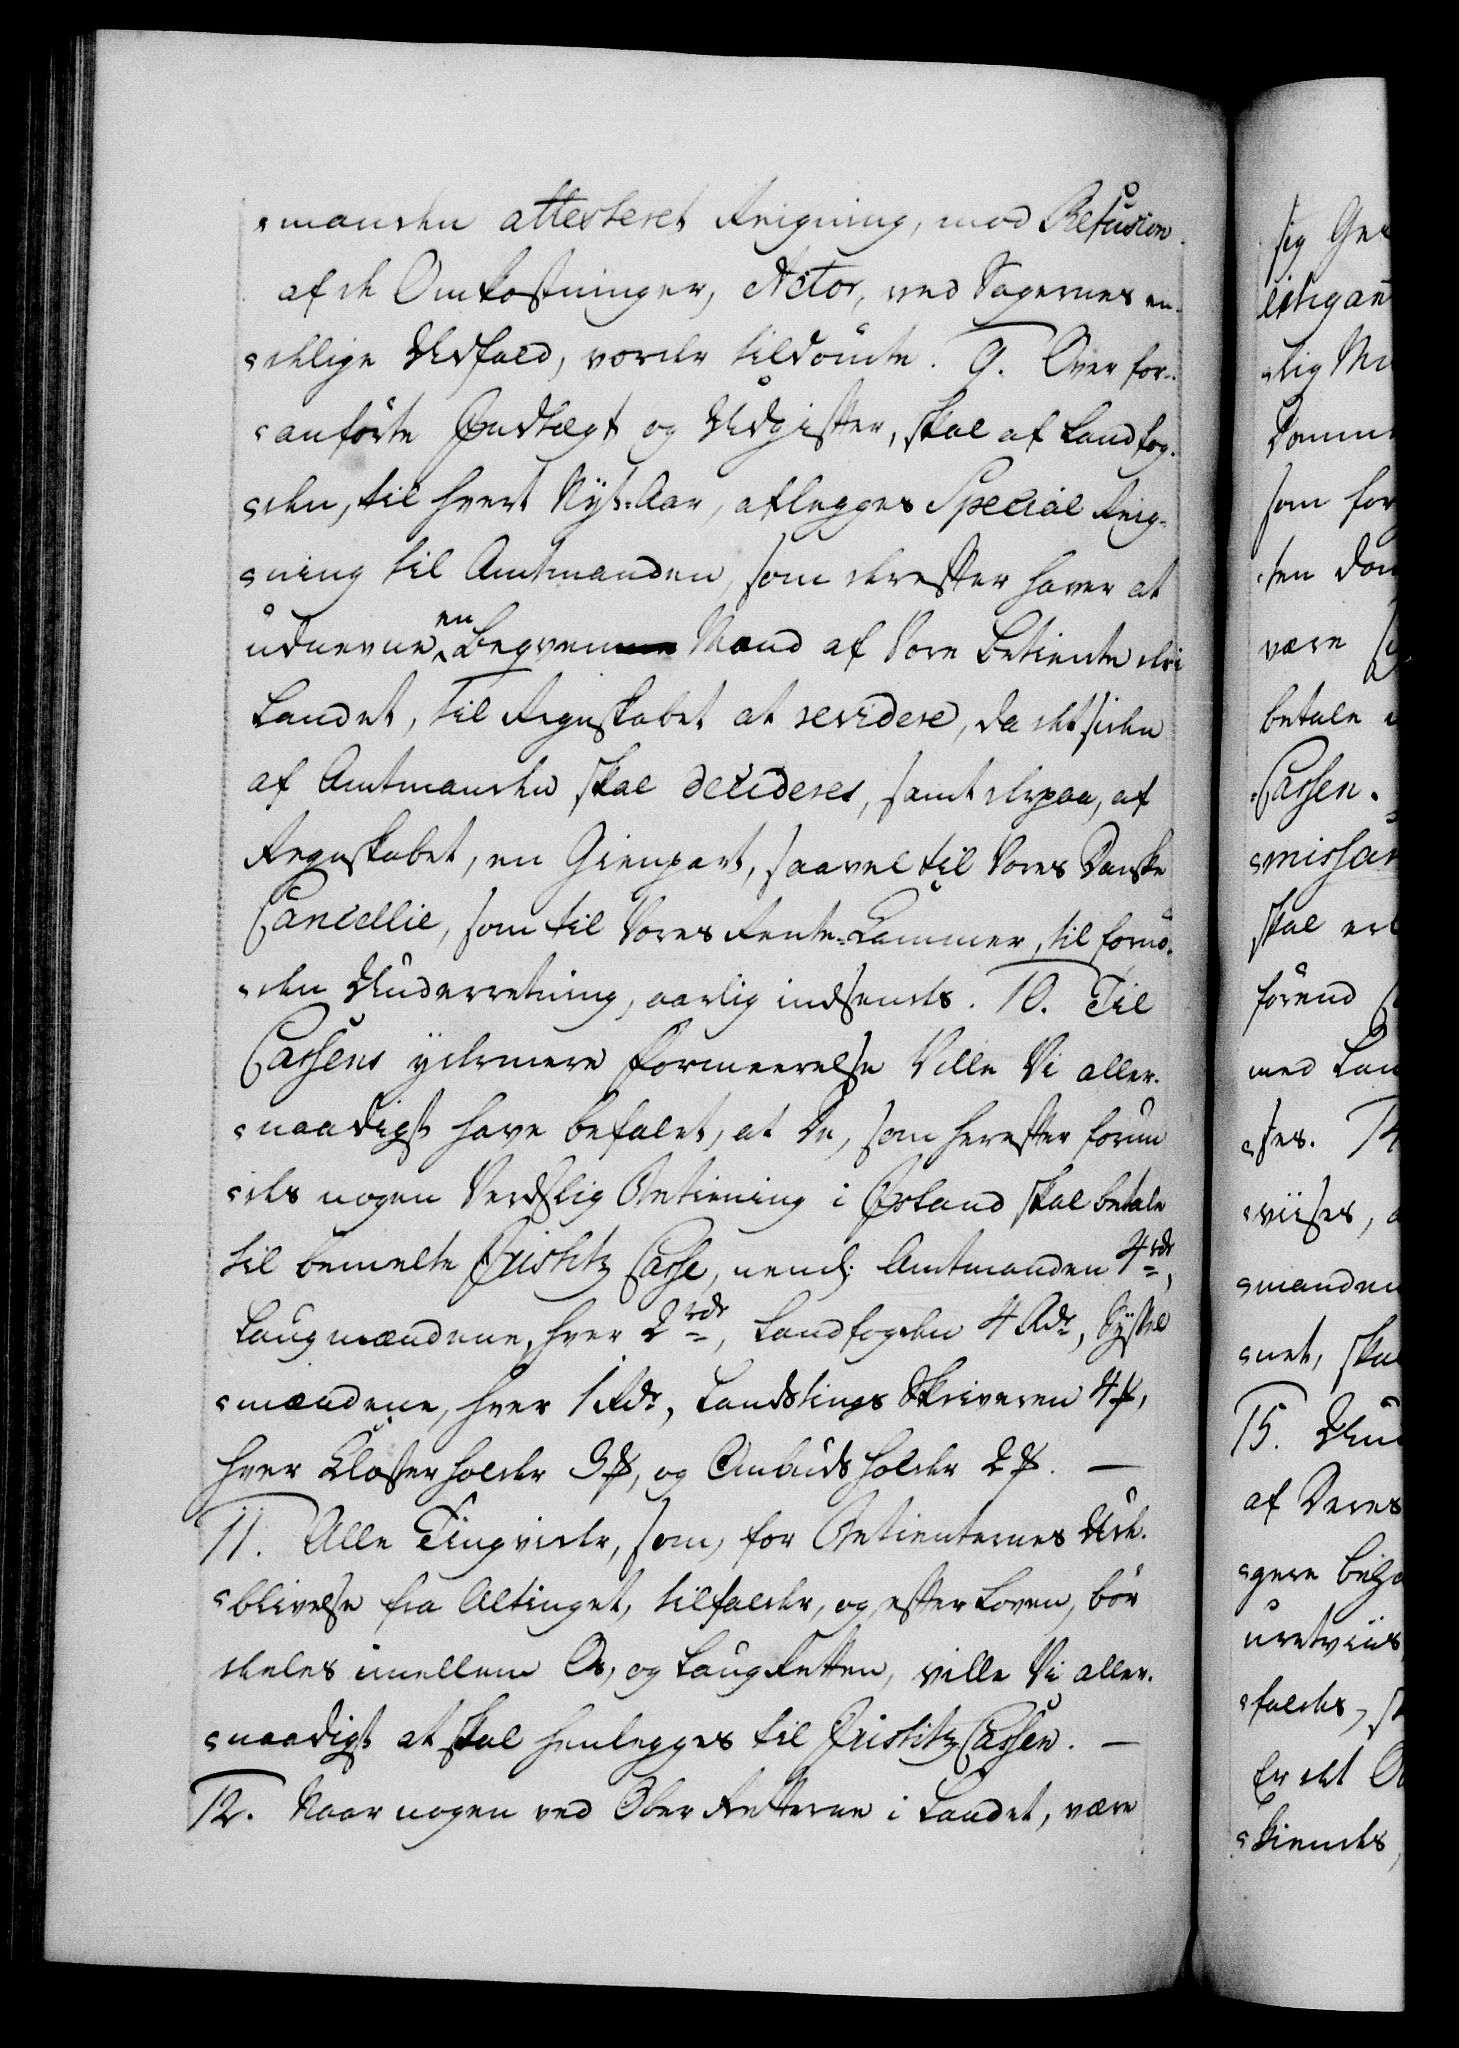 manden attesteret Reigning, mod Refusion
af de Omkostninger, Actor, ved Sagernes en-
delige Udfald, vorder tildömte. 9. Over for-
anförte Indtægt og Udgifter, skal af Landfog-
den, til hvert Nyt-Aar, aflegges Special Reig-
ning til Amtmanden, som derefter haver at
udnevne en beqvem Mand af Vore Betiente der i
Landet, til Regnskabet at revidere, da det siden
af Amtmanden skal decideres, samt derpaa, af
Regnskabet, en Gienpart, saavel til Vores Danske
Cancellie, som til Vores Rente-Kammer, til fornö-
den Underretning, aarlig indsendes. 10. Til
Cassens ydermere Formeerelse Ville Vi aller-
naadigst have befalet, at De, som herefter forun-
des nogen Verdslig Betiening i Island skal betale
til bemelte Justitz Casse, neml: Amtmanden 4 rdr,
Laugmændene, hver 2 rdr, Landfogden 4 Rdr, Syssel
mændene, hver 1 Rdr, Landstings Skriveren 4 ß,
hver Klosterholder 3 ß, og Ombudsholder 2 ß. —
11. Alle Tingvider, som, for Betienternes Ude-
blivelse fra Altinget, tilfalder, og, efter Loven, bör
deeles imellem Os, og Laug Retten, ville Vi aller-
naadigst at skal henlegges til Justitz Cassen. —
12. Naar nogen ved Ober Retterne i Landet, være
sig
litigan
lig
Domm
som for
ten
være
betale
Cassen.
missar
skal
förend
med
ses.
viises,
manden
net, skal
15. Und
af Deres
gere
uretviis
faldes,
Er det
kiendes,